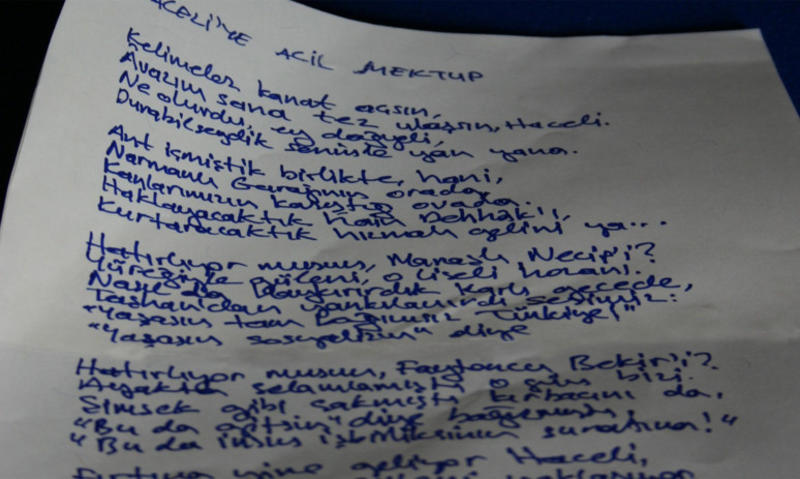 ACELİ'YE ACİL MEKTUP
Kelimeler kanat açsın,
Avazım sana tez ulaşsın, Haceli.
Ne olurdu, ey dağyeli,
Durabilseydik seninle yan yana.
Ant içmiştik birlikte, hani,
Narmanlı Garajının orada,
Kanlarımızın karıştığı ovada.
Haklayacaktık hain Dehhak'ı,
Kurtaracaktık hicranlı gelini ya...
Hatırlıyor musun, Maraşlı Necip'i?
Yüreğiyle güleni, o liseli hozanı.
Nasıl da karlı gecede,
Taşhan'dan yankılanırdı sesimiz:
"Yaşasın tam bağımsız Türkiye!"
"Yaşasın sosyalizm" diye
Hatırlıyor musun, Faytoncu Bekir'i?
Ayakta selamlamıştı o gün bizi.
Şimşek gibi çakmıştı kırbacını da,
"Bu da gitsin" diye bağırmıştı,
"Bu da inin suratına!"
Fırtına yine geliyor Haceli,